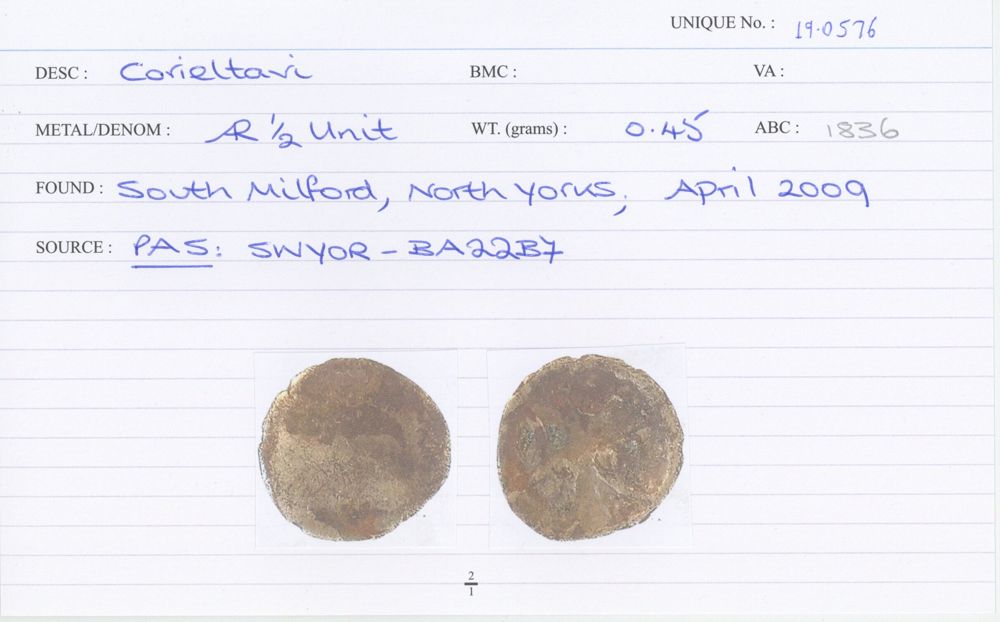 UNIQUE No. : 19.0576
DESC : Corieltavi BMC : VA :
METAL/DENOM : AR ½ Unit WT. (grams) : 0.45 ABC : 1836
FOUND : South Milford, North Yorks; April 2009
SOURCE : PAS: SWYOR - BA22B7
2/1